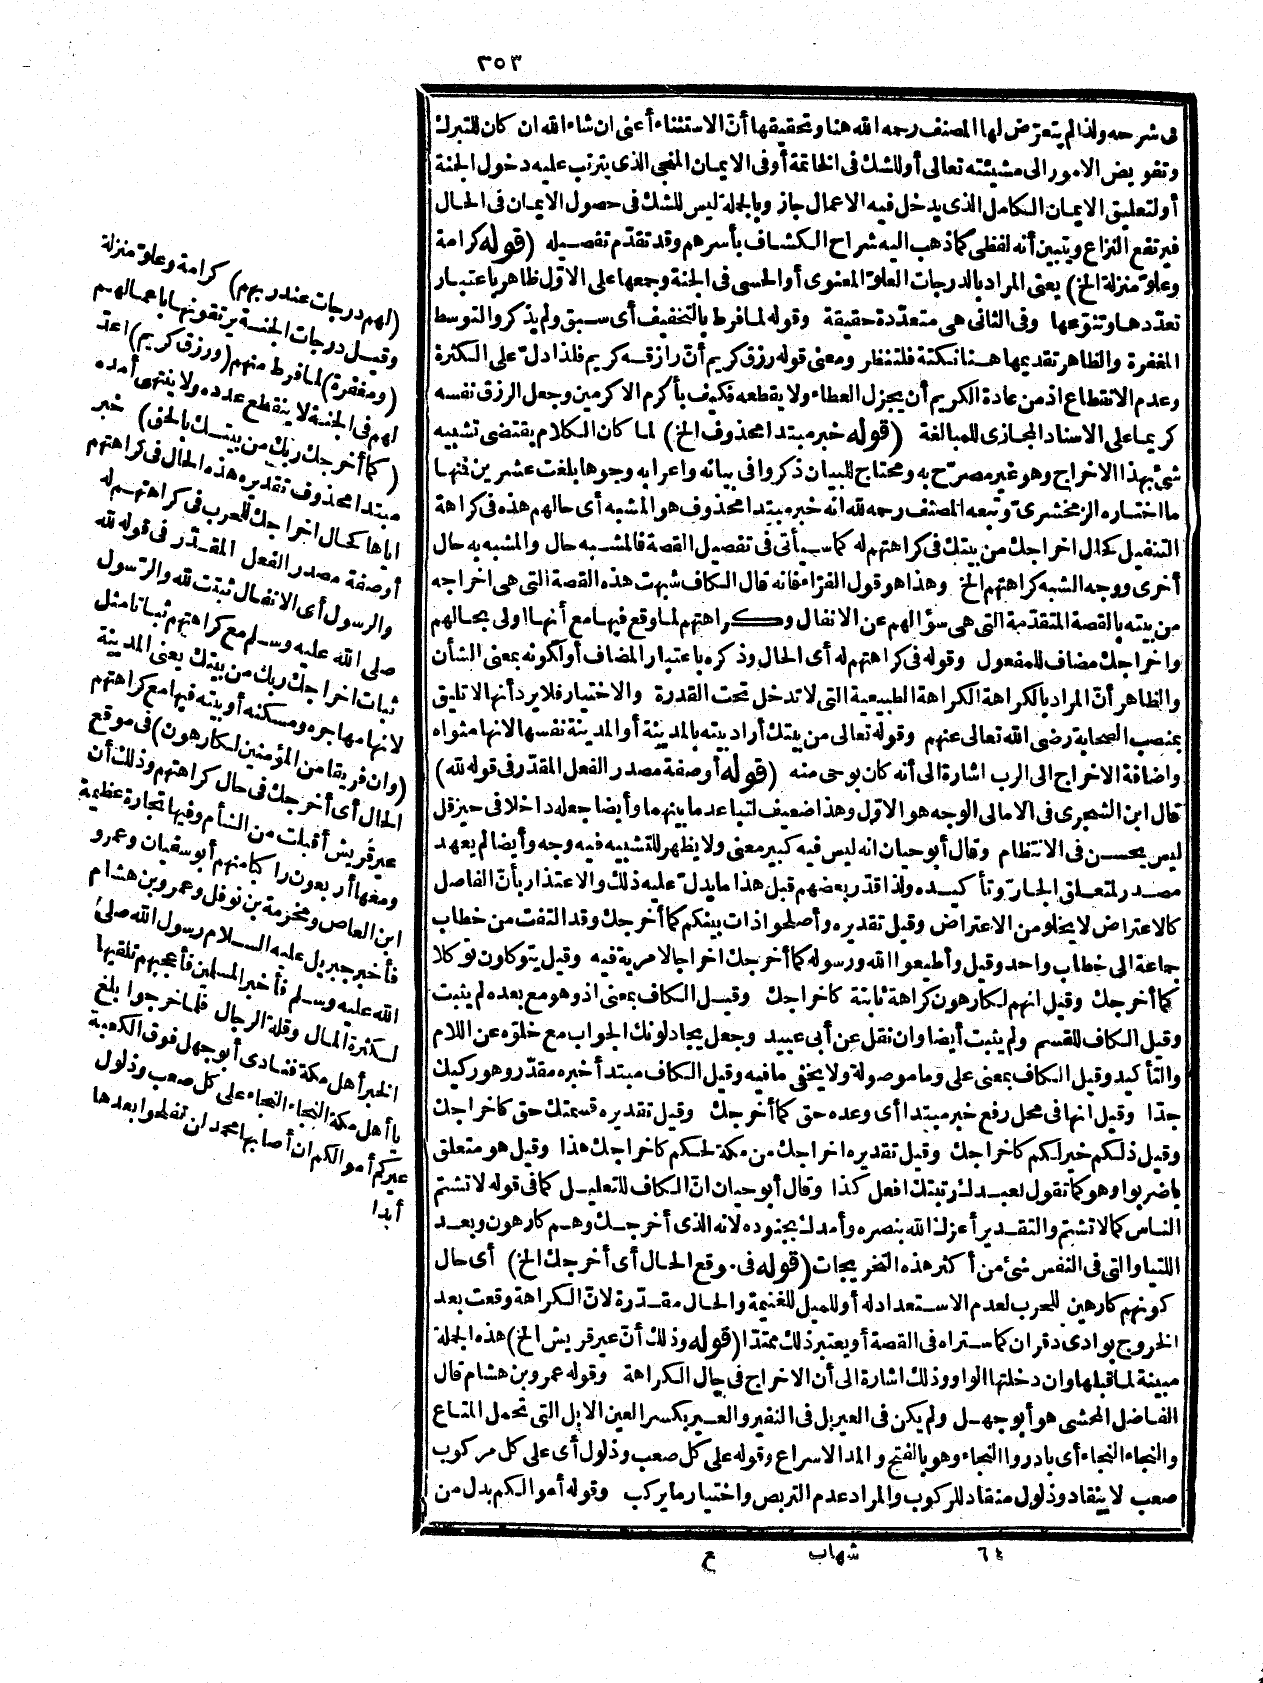 ٢٥٣
فى شرحه ولذا لم يتعرّض لها المصنف رحمه الله هنا وتحقيقها أنّ الاستثناء أعنى ان شاء الله ان كان للتبرك
وتفويض الامور الى مشيئته تعالى أو للشك فى الخاتمة أو فى الايمان المنجى الذى يترتب عليه دخول الجنة
أو لتعليق الايمان الكامل الذى يدخل فيه الاعمال جاز وبالجملة ليس للشك فى حصول الايمان فى الحال
فيرتفع النزاع ويتبين أنه لفظى كما ذهب اليه شراح الكشاف بأسرهم وقد تقدّم تفصيله (قوله كرامة
وعلوّ منزلة الخ) يعنى المراد بالدرجات العلوّ المعنوى أو الحسى فى الجنة وجمعها على الاوّل ظاهر باعتبار
تعدّدها وتنوّعها وفى الثانى هى متعدّدة حقيقة وقوله لما فرط بالتخفيف أى سبق ولم يذكروا لتوسط
المغفرة والظاهر تقديمها هنا نكتة فلتنظر ومعنى قوله رزق كريم أنّ رازقه كريم فلذا دلّ على الكثرة
وعدم الانقطاع اذ من عادة الكريم أن يجزل العطاء ولا يقطعه فكيف بأكرم الاكرمين وجعل الرزق نفسه
كريما على الاسناد المجازى للمبالغة (قوله خبر مبتدا محذوف الخ) لما كان الكلام يقتضى تشبيه
شئ بهذا الاخراج وهو غير مصرّح به ومحتاج للبيان ذكروا فى بيانه واعرابه وجوها بلغت عشرين فنها
ما اختاره الزمخشرىّ وتبعه المصنف رحمه لله انه خبر مبتدا محذوف هو المشبه أى حالهم هذه فى كراهة
التنفيل كحال اخراجك من بيتك فى كراهتهم له كما سيأتى فى تفصيل القصة فالمشبه حال والمشبه به حال
أخرى ووجه الشبه كراهتهم الخ وهذا هو قول الفرّاء فانه قال الكاف شبهت هذه القصة التى هى اخراجه
من بيته بالقصة المتقدّمة التى هى سؤالهم عن الانفال وكراهتهم لما وقع فيها مع أنها اولى بحالهم
واخراجك مضاف للمفعول وقوله فى كراهتهم له أى الحال وذكره باعتبار المضاف أو لكونه بمعنى الشأن
والظاهر أنّ المراد بالكراهة الكراهة الطبيعية التى لا تدخل تحت القدرة والاختيار فلا يرد أنها لا تليق
بمنصب الصحابة رضى الله تعالى عنهم وقوله تعالى من بيتك أراد بيته بالمدينة أو المدينة نفسها لانها مثواه
واضافة الاخراج الى الرب اشارة الى أنه كان بوحى منه (قوله أو صفة مصدر الفعل المقدّر فى قوله لله)
قال ابن الشجرى فى الامالى الوجه هو الاوّل وهذا ضعيف لتباعد ما بينهما وأيضا جعله داخلا فى حيز قل
ليس يحسن فى الانتظام وقال أبو حيان انه ليس فيه كبير معنى ولا يظهر للتشبيه فيه وجه وأيضا لم يعهد
مصدر لمتعلق الجارّ وتأكيده ولذا قدّر بعضهم قبل هذا ما يدلّ عليه ذلك والاعتذار بأنّ الفاصل
كالاعتراض لا يخلو من الاعتراض وقيل تقديره وأصلحوا ذات بينكم كما أخرجك وقد التفت من خطاب
جماعة الى خطاب واحد وقيل وأطيعوا الله ورسوله كما أخرجك اخراجا لا مرية فيه وقيل يتوكلون توكلا
كما أخرجك وقيل انهم لكارهون كراهة ثابتة كاخراجك وقيل الكاف بمعنى اذ وهو مع بعده لم يثبت
وقيل الكاف للقسم ولم يثبت أيضا وان نقل عن أبى عبيد وجعل يجادلونك الجواب مع خلوّه عن اللام
والتأكيد وقيل الكاف بمعنى على وما موصولة ولا يخفى ما فيه وقيل الكاف مبتدأ خبره مقدّر وهو ركيك
جدّا وقيل انها فى محل رفع خبر مبتدا أى وعده حق كما أخرجك وقيل تقديره قسمتك حق كاخراجك
وقيل ذلكم خير لكم كاخراجك وقيل تقديره اخراجك من مكة لحكم كاخراجك هذا وقيل هو متعلق
باضربوا وهو كما تقول لعبدك ربيتك افعل كذا وقال أبو حيان انّ الكاف للتعليل كما فى قوله لا تشتم
الناس كما لا تشتم والتقدير أعزك الله بنصره وأمدك بجنوده لانه الذى أخرجك وهم كارهون وبعد
اللتيا والتى فى النفس شئ من أكثر هذه التخريجات (قوله فى موقع الحال أى أخرجك الخ) أى حال
كونهم كارهين للحرب لعدم الاستعداد له أو للميل للغنيمة والحال مقدّرة لانّ الكراهة وقعت بعد
الخروج بوادى دقران كما ستراه فى القصة أو يعتبر ذلك ممتدّا (قوله وذلك أنّ عير قريش الخ) هذه الجملة
مبينة لما قبلها وان دخلتها الواو وذلك اشارة الى أن الاخراج فى حال الكراهة وقوله عمرو بن هشام قال
الفاضل المحشى هو أبو جهل ولم يكن فى العير بل فى النفير والعير بكسر العين الابل التى تحمل المتاع
والنجاء النجاء أى بادروا النجاء وهو بالفتح والمد الاسراع وقوله على كل صعب وذلول أى على كل مركوب
صعب لا ينقاد وذلول منقاد للركوب والمراد عدم التربص واختيار ما يركب وقوله أموالكم بدل من
(لهم درجات عند ربهم) كرامة وعلوّ منزلة
وقيل درجات الجنة يرتقونها باعمالهم
(ومغفرة) لما فرط منهم (ورزق كريم) اعدّ
لهم فى الجنة لا ينقطع عدده ولا ينتهى أمده
(كما أخرجك ربك من بيتك بالحق) خبر
مبتدا محذوف تقديره هذه الحال فى كراهتهم
اياها كحال اخراجك للحرب فى كراهتهم له
أو صفة مصدر الفعل المقدّر فى قوله لله
والرسول أى الانفال ثبتت لله والرسول
صلى الله عليه وسلم مع كراهتهم ثباتا مثل
ثبات اخراجك ربك من بيتك يعنى المدينة
لانها مهاجره ومسكنه أو بيته فيها مع كراهتهم
(وان فريقا من المؤمنين لكارهون) فى موقع
الحال أى أخرجك فى حال كراهتهم وذلك أن
عير قريش أقبلت من الشأم وفيها تجارة عظيمة
ومعها أربعون راكبا منهم أبو سفيان وعمرو
ابن العاص ومخرمة بن نوفل وعمرو بن هشام
فأخبر جبريل عليه السلام رسول الله صلى
الله عليه وسلم فأخبر المسلمين فأعجبهم تلقيها
لكثرة المال وقلة الرجال فلما خرجوا بلغ
الخبر أهل مكة فنادى أبو جهل فوق الكعبة
يا أهل مكة النجاء النجاء على كل صعب وذلول
عيركم أموالكم ان أصابها محمد لن تفلحوا بعدها
أبدا
٦٤ شهاب ع